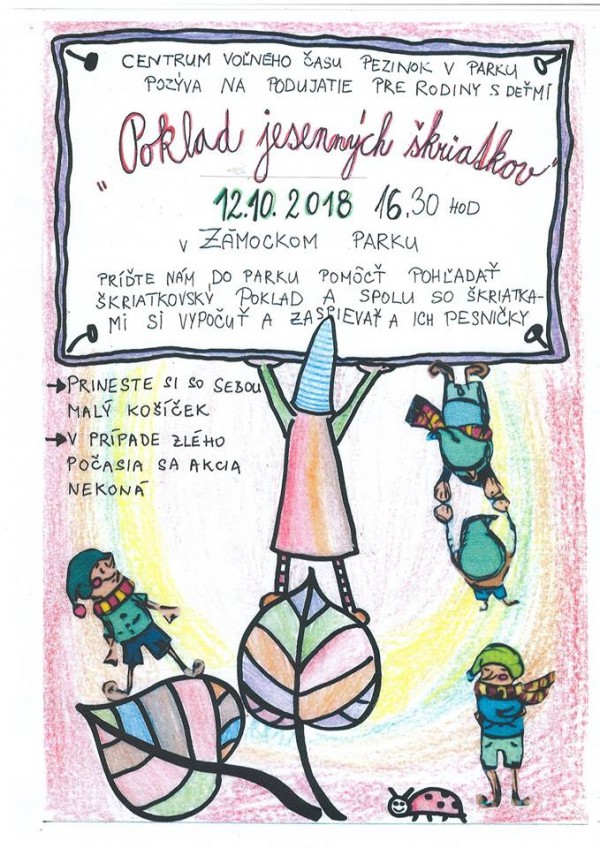 CENTRUM VOĽNÉHO ČASU PEZINOK V PARKU
POZÝVA NA PODUJATIE PRE RODINY S DEŤMI
"Poklad jesenných škriatkov"
12.10.2018 16.30 HOD
V ZÁMOCKOM PARKU
PRÍĎTE NÁM DO PARKU POMÔCŤ POHĽADAŤ
ŠKRIATKOVSKÝ POKLAD A SPOLU SO ŠKRIATKA-
MI SI VYPOČUŤ A ZASPIEVAŤ A ICH PESNIČKY
→ PRINESTE SI SO SEBOU
MALÝ KOŠÍČEK
→ V PRÍPADE ZLÉHO
POČASIA SA AKCIA
NEKONÁ